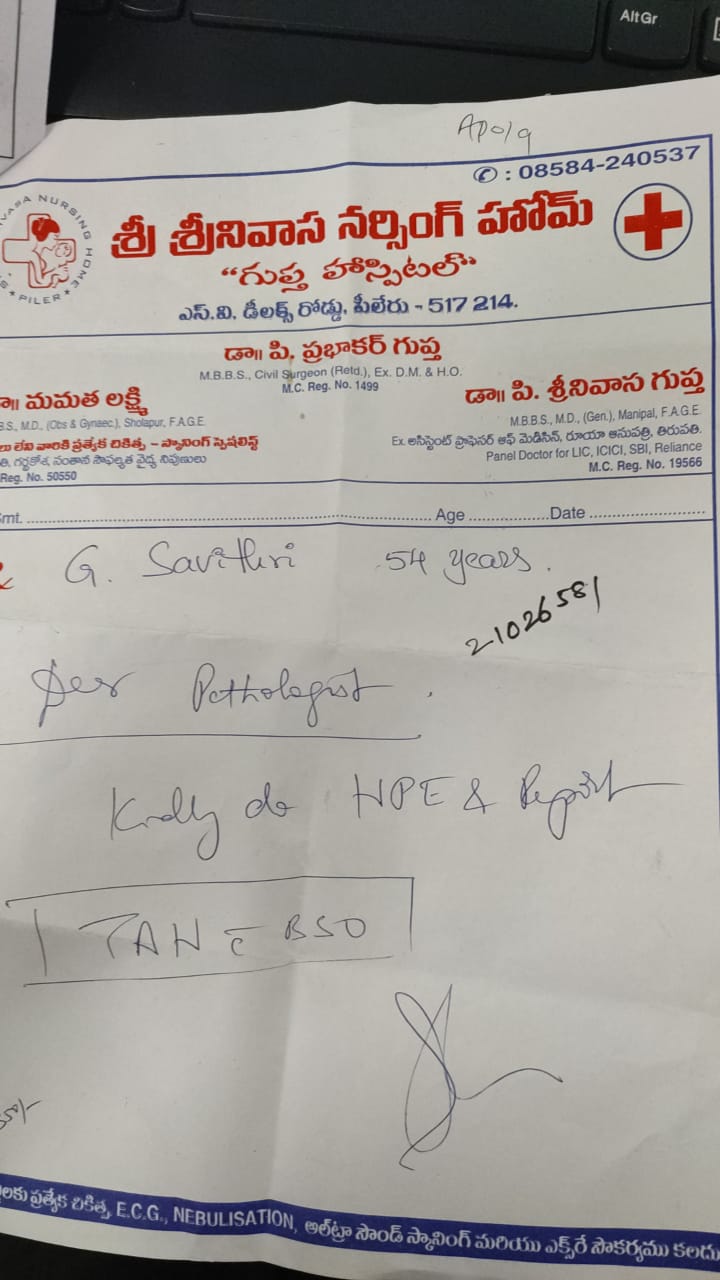 AltGr
Apolg
✆ : 08584-240537
NURSING HOME
PILER
శ్రీ శ్రీనివాస నర్సింగ్ హోమ్
“గుప్త హాస్పిటల్”
ఎస్.వి. డీలక్స్ రోడ్డు, పీలేరు - 517 214.
డా॥ పి. ప్రభాకర్ గుప్త
M.B.B.S., Civil Surgeon (Retd.), Ex. D.M. & H.O.
M.C. Reg. No. 1499
మమత లక్ష్మి
M.D., (Obs & Gynaec.), Sholapur, F.A.G.E.
లేని వారికి ప్రత్యేక చికిత్స - స్కానింగ్ స్పెషలిస్ట్
గర్భకోశ, సంతాన సాఫల్యత వైద్య నిపుణులు
Reg. No. 50550
డా॥ పి. శ్రీనివాస గుప్త
M.B.B.S., M.D., (Gen.), Manipal, F.A.G.E.
Ex. అసిస్టెంట్ ప్రొఫెసర్ ఆఫ్ మెడిసిన్, రూయా ఆసుపత్రి, తిరుపతి.
Panel Doctor for LIC, ICICI, SBI, Reliance
M.C. Reg. No. 19566
Smt. Age Date
G. Savithri 54 years.
21026581
Pathologist
Kindly do HPE & Report
TAH c̄ BSO
ప్రత్యేక చికిత్స, E.C.G., NEBULISATION, అల్ట్రా సౌండ్ స్కానింగ్ మరియు ఎక్స్‌రే సౌకర్యము కలదు